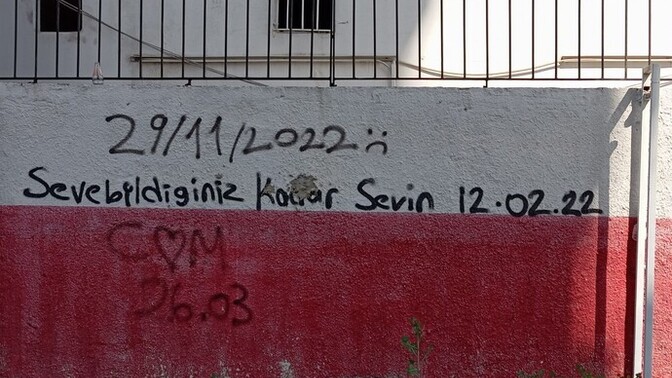 29/11/2022 :(
Sevebildiginiz Kadar Sevin 12.02.22
C♡M
26.03